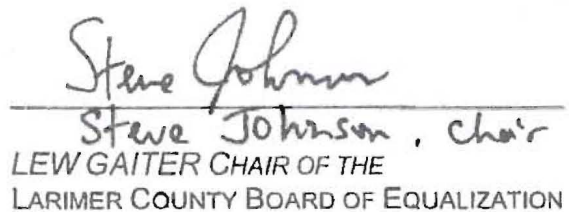 Steve Johnson
Steve Johnson, Chair
LEW GAITER CHAIR OF THE
LARIMER COUNTY BOARD OF EQUALIZATION